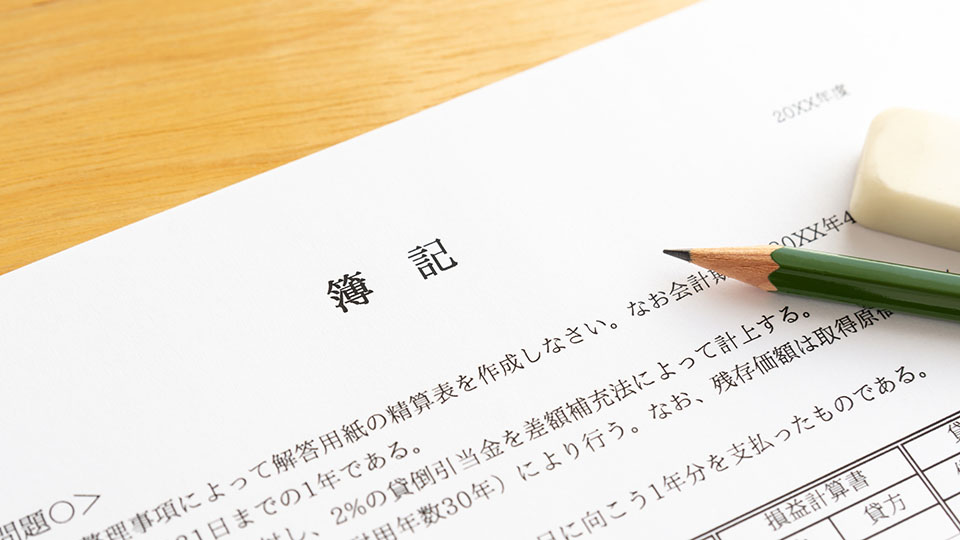 20XX年度
簿記
問題○＞
整理事項によって解答用紙の精算表を作成しなさい。なお会計期 20XX年4
31日までの1年である。
対し、2%の貸倒引当金を差額補充法によって計上する。
耐用年数30年）により行う。なお、残存価額は取得原価
日に向こう1年分を支払ったものである。
損益計算書
貸方